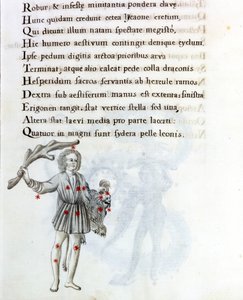 Robur: & infestę minitantia pondera clavę.
Hunc quidam credunt cetea Licaone cretum,
Qui dicunt illum natam spectare megistó,
Hic humero aestivum contingit denique cyclum
Ipse pedum digitis arctos prioribus artus
Terminat, atque alio calcat pede colla draconis
Hesperidum sacros servantis ab hercule ramos.
Dextra sub aestiferum manus est extenta; sinistra
Erigonen tangit. stat vertice stella sed una,
Altera stat laevi media pro parte lacerti:
Quatuor in magni sunt sydera pelle leonis.